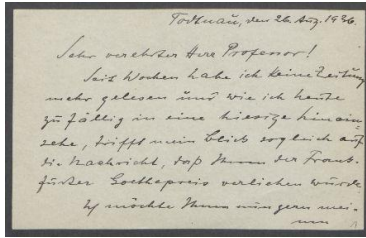 Todtnau, den 26. Aug. 1936.
Sehr verehrter Herr Professor!
Seit Wochen habe ich keine Zeitung
mehr gelesen und wie ich heute
zufällig in eine hiesige hinein-
sehe, trifft mein Blick sogleich auf
die Nachricht, daß Ihnen der Frank-
furter Goethepreis verliehen wurde.
Ich möchte Ihnen nun gern mei-
nen